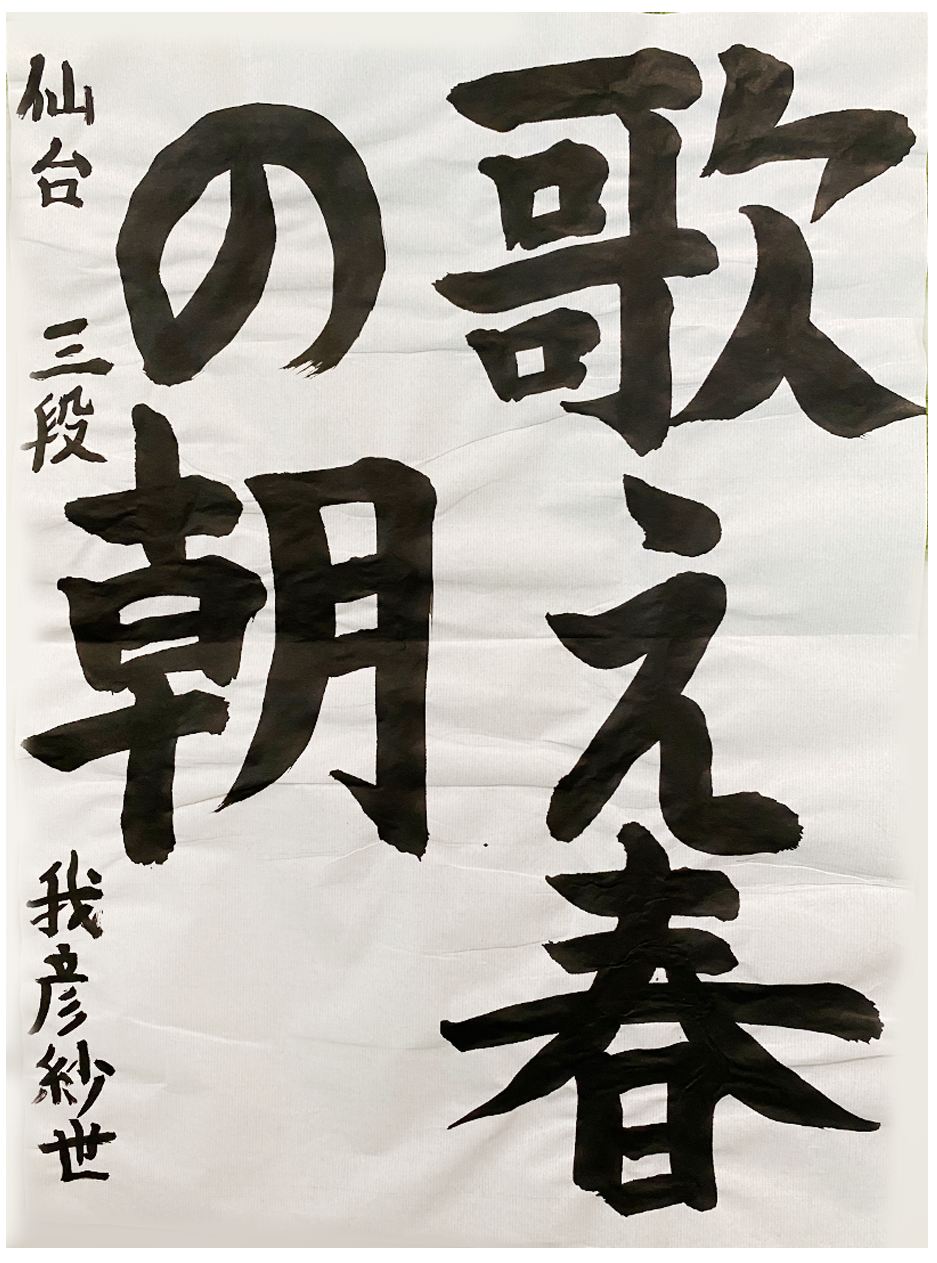 歌え春
の朝
仙台 三段 我彦紗世